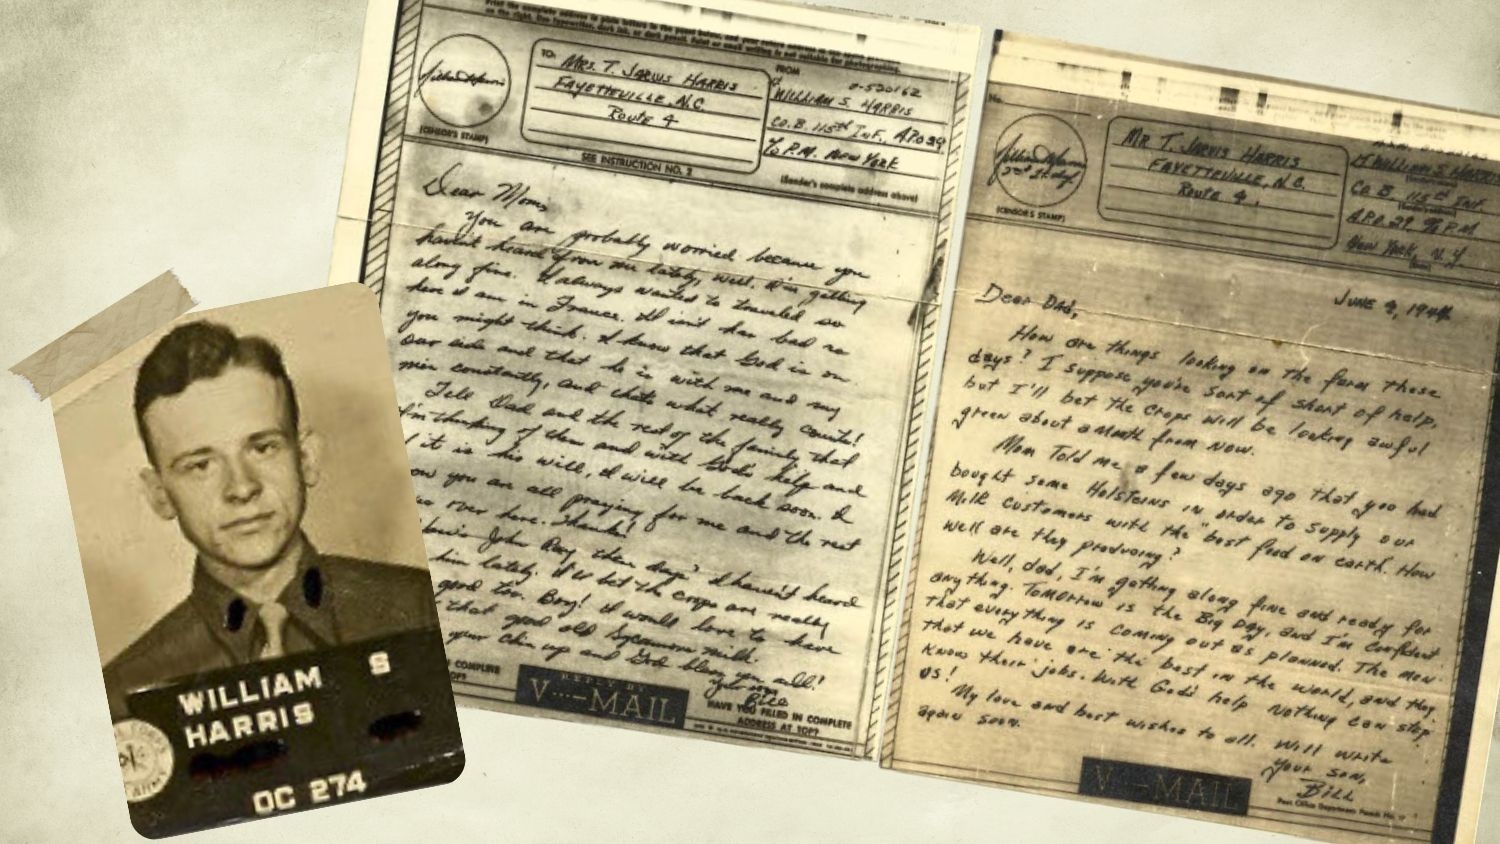 Print the complete address in plain letters in the panel below, and your return address in the space provided
on the right. Use typewriter, dark ink, or dark pencil. Faint or small writing is not suitable for photographing.
(CENSOR'S STAMP)
TO:
MRS. T. JARVIS HARRIS
FAYETTEVILLE, N.C.
ROUTE 4
SEE INSTRUCTION NO. 2
FROM
O-520162
WILLIAM S. HARRIS
CO. B. 115th INF., APO 29
% P.M. NEW YORK
(Sender's complete address above)
Dear Mom,
You are probably worried because you
haven't heard from me lately, well, I'm getting
along fine. I always wanted to travel so
here I am in France. It isn't bad as
you might think. I know that God is on
our side and that he is with me and my
men constantly, and thats what really counts!
Tell Dad and the rest of the family that
I'm thinking of them and with God's help and
if it is his will, I will be back soon. I
know you are all praying for me and the rest
over here. Thanks!
How's John Ray these days? I haven't heard
him lately. I'll bet the crops are really
good too. Boy! It would love to have
that good old Sycamore milk.
your chin up and God bless you all!
Your son,
Bill
COMPLETE
TOP?
REPLY BY
V···—MAIL
HAVE YOU FILLED IN COMPLETE
ADDRESS AT TOP?
No.
2nd Lt. Inf.
(CENSOR'S STAMP)
MR T. JARVIS HARRIS
FAYETTEVILLE, N.C.
ROUTE 4.
WILLIAM S HARRIS
CO. B 115th INF.
A.P.O. 29 % P.M
NEW YORK, N.Y
JUNE 3, 1944
DEAR DAD,
How are things looking on the farm these
days? I suppose you're sort of short of help,
but I'll bet the crops will be looking awful
green about a month from now.
Mom told me a few days ago that you had
bought some Holsteins in order to supply our
milk customers with the "best food on earth. How
well are they producing?
Well, dad, I'm getting along fine and ready for
anything. Tomorrow is the Big Day, and I'm confident
that everything is coming out as planned. The men
that we have are the best in the world, and they
know their jobs. With God's help nothing can stop
us!
My love and best wishes to all. Will write
again soon.
Your son,
BILL
V···—MAIL
Post Office Department Permit No.
WILLIAM S
HARRIS
OC 274